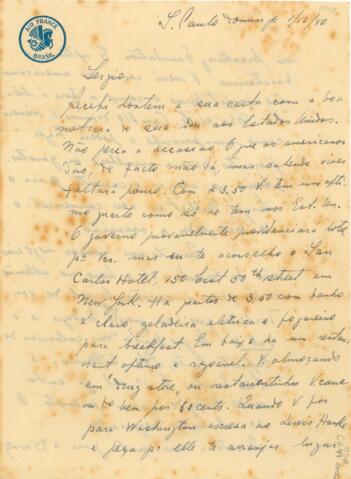 AIR FRANCE
BRASIL
S. Paulo Domingo 1/12/40
Sergio,
Recebi hontem a sua carta com a boa
noticia de sua ida aos Estados Unidos.
Não perca a occasião. O que os americanos
dão, de facto não dá, mas sabendo viver
faltará pouco. Com $3.50 V. tem um opti-
mo quarto como só se tem nos Est. Un.
O governo provavelmente providenciará hotel
pª Vc. mas eu te aconselho o San
Carlos Hotel, 150 East 50th street em
New York. Ha quartos de 3,50 com banho
é claro, geladeira eletrica e fogareiro
para breakfast. Em baixo ha um restau-
rant optimo e rasoavel. V. almoçando
em "drug store" ou restaurantinhos V. come
muito bem por 60 cents. Quando V. for
para Washington escreva ao Lewis Hanke
e peça pª elle te arranjar lugar